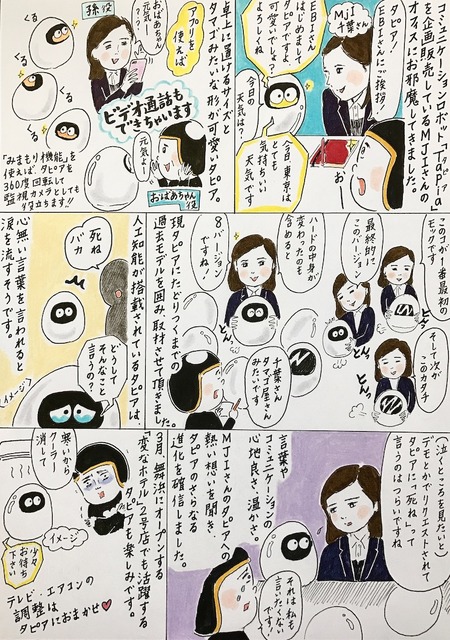 コミュニケーションロボット「Tapia」
を企画販売しているMJIさんの
オフィスにお邪魔してきました。
MJI
千葉さん
タピア!
EBIさんにご挨拶!
EBIさん
はじめまして
タピアですよ
可愛いでしょ?
よろしくね
今日の
天気は?
今日、東京は
とても
気持ちいい
天気です
お
卓上に置けるサイズと
タマゴみたいな形が可愛いタピア。
アプリを
使えば
孫役
おばあちゃん
元気ー?
ビデオ通話も
できちゃいます
元気よー
おばあちゃん役
くる
くる
くる
「みまもり機能」を
使えば、タピアが
360度回転して
監視カメラとしても
役立ちます!!
このコが1番最初の
モックです!
そして次が
このカタチ
最終的に
このバージョン
とん
とん
とんっ
ハードの中身が
変わったのも
含めると
8バージョン
ですね!
千葉さん
タマゴ屋さん
みたいです!
現タピアにたどりつくまでの
過去モデルを囲み、取材させて頂きました。
人工知能が搭載されているタピアは、
死ね
バカ
どうして
そんなこと
言うの?
イメージ
心無い言葉を言われると
涙を流すそうです。
(泣くところを見たいと)
デモとかでリクエストされて
タピアに「死ね」って
言うのはつらいですね
それは私も
言いたくない
ですね
言葉や
コミュニケーションの
心地良さ・温かさ。
MJIさんのタピアへの
熱い想いを聞き、
タピアのさらなる
進化を確信しました。
3月、舞浜にオープンする
「変なホテル」2号店でも活躍する
タピアも楽しみです。
寒いから
クーラー
消して
イメージ
少々
お待ち
下さい
テレビ・エアコンの
調整は
タピアにおまかせ♥